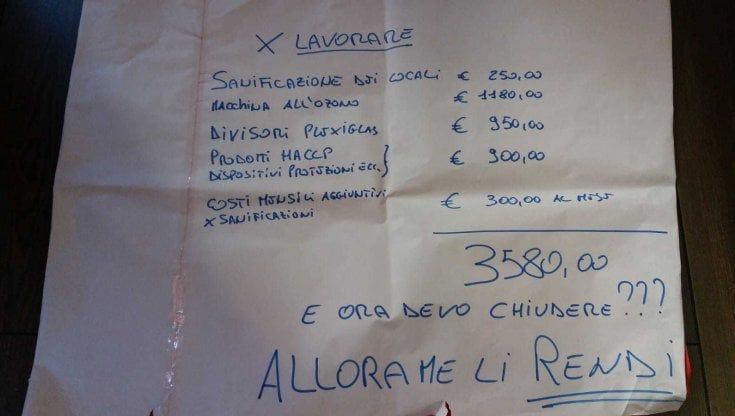 X LAVORARE
SANIFICAZIONE DEI LOCALI € 250,00
MACCHINA ALL'OZONO € 1180,00
DIVISORI PLEXIGLAS € 950,00
PRODOTTI HACCP
DISPOSITIVI PROTEZIONI ECC. } € 900,00
COSTI MENSILI AGGIUNTIVI
X SANIFICAZIONI € 300,00 AL MESE
3580,00
E ORA DEVO CHIUDERE???
ALLORA ME LI RENDI